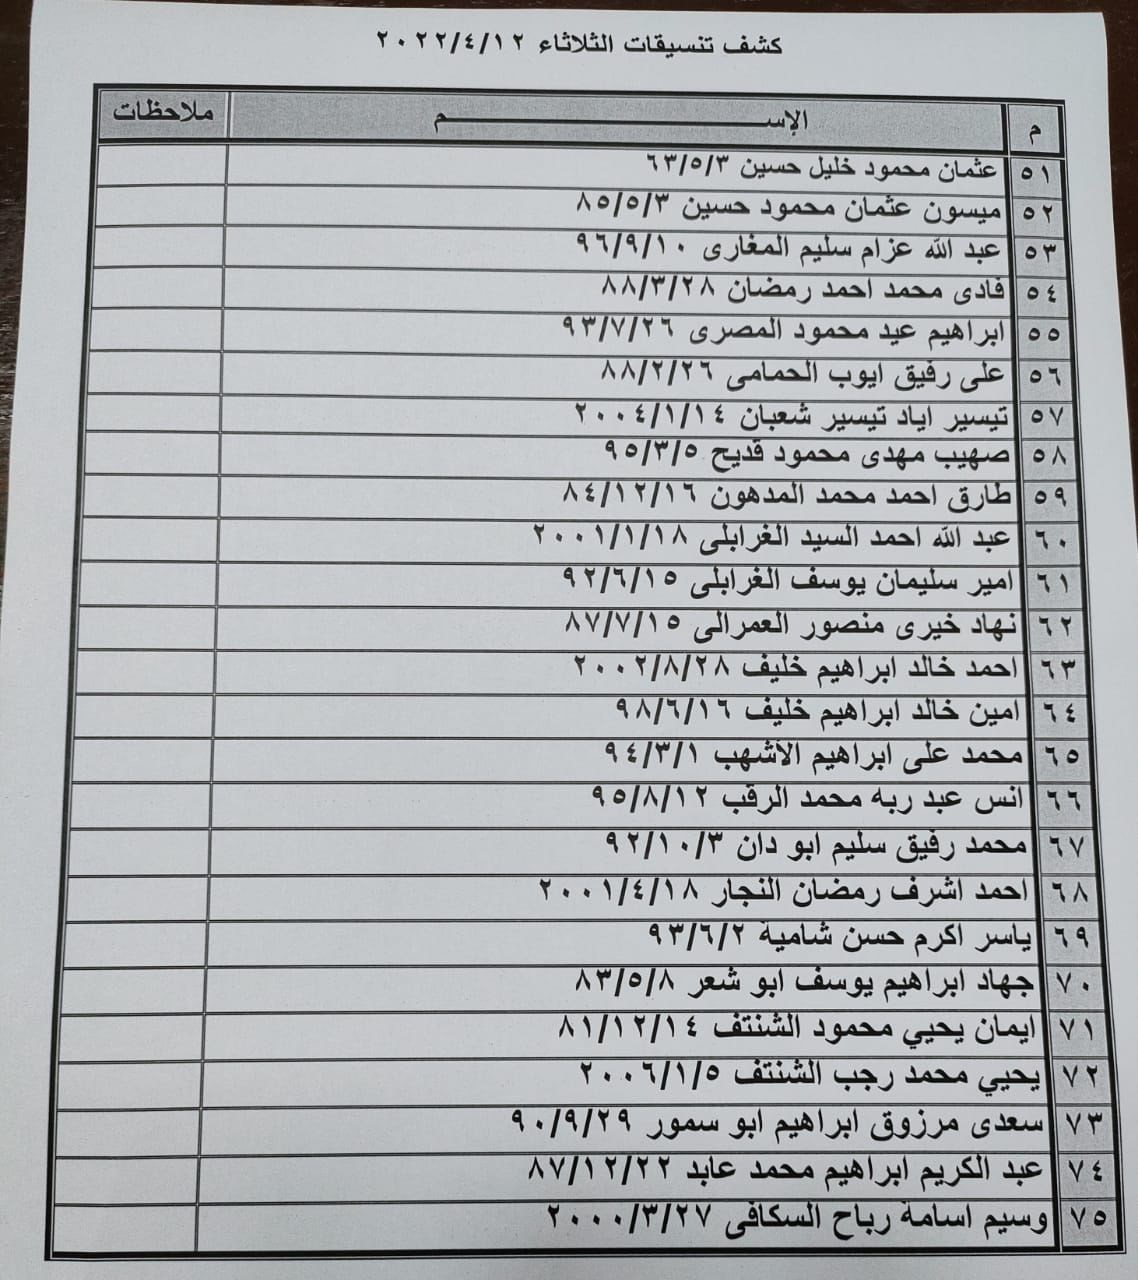 كشف تنسيقات الثلاثاء ٢٠٢٢/٤/١٢
م الإســـــــم ملاحظات
٥١ عثمان محمود خليل حسين ٦٣/٥/٣
٥٢ ميسون عثمان محمود حسين ٨٥/٥/٣
٥٣ عبد الله عزام سليم المغارى ٩٦/٩/١٠
٥٤ فادى محمد احمد رمضان ٨٨/٣/٢٨
٥٥ ابراهيم عيد محمود المصرى ٩٣/٧/٢٦
٥٦ على رفيق ايوب الحمامى ٨٨/٢/٢٦
٥٧ تيسير اياد تيسير شعبان ٢٠٠٤/١/١٤
٥٨ صهيب مهدى محمود قديح ٩٥/٣/٥
٥٩ طارق احمد محمد المدهون ٨٤/١٢/١٦
٦٠ عبد الله احمد السيد الغرابلى ٢٠٠١/١/١٨
٦١ امير سليمان يوسف الغرابلى ٩٢/٦/١٥
٦٢ نهاد خيرى منصور العمرالى ٨٧/٧/١٥
٦٣ احمد خالد ابراهيم خليف ٢٠٠٢/٨/٢٨
٦٤ امين خالد ابراهيم خليف ٩٨/٦/١٦
٦٥ محمد على ابراهيم الأشهب ٩٤/٣/١
٦٦ انس عبد ربه محمد الرقب ٩٥/٨/١٢
٦٧ محمد رفيق سليم ابو دان ٩٢/١٠/٣
٦٨ احمد اشرف رمضان النجار ٢٠٠١/٤/١٨
٦٩ ياسر اكرم حسن شامية ٩٣/٦/٢
٧٠ جهاد ابراهيم يوسف ابو شعر ٨٣/٥/٨
٧١ ايمان يحيي محمود الشنتف ٨١/١٢/١٤
٧٢ يحيي محمد رجب الشنتف ٢٠٠٦/١/٥
٧٣ سعدى مرزوق ابراهيم ابو سمور ٩٠/٩/٢٩
٧٤ عبد الكريم ابراهيم محمد عابد ٨٧/١٢/٢٢
٧٥ وسيم اسامة رباح السكافى ٢٠٠٠/٣/٢٧